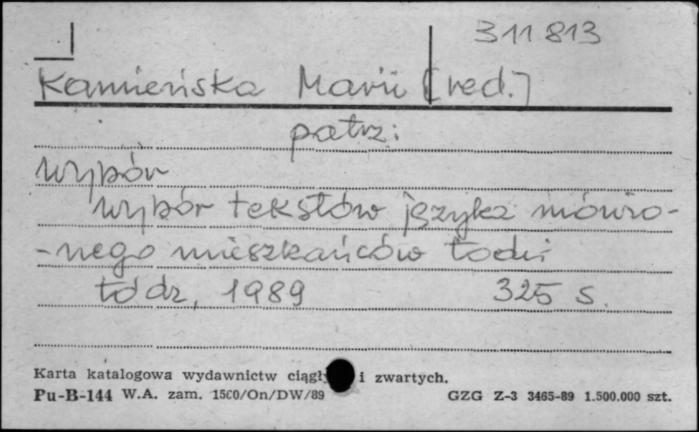 311813
Kamieńska Marii [red.]
patrz:
Wybór
Wybór tekstów języka mówio-
-nego mieszkańców Łodzi
Łódź, 1989 325 s.
Karta katalogowa wydawnictw ciągł i zwartych.
Pu-B-144 W.A. zam. 1500/On/DW/89 GZG Z-3 3465-89 1.500.000 szt.